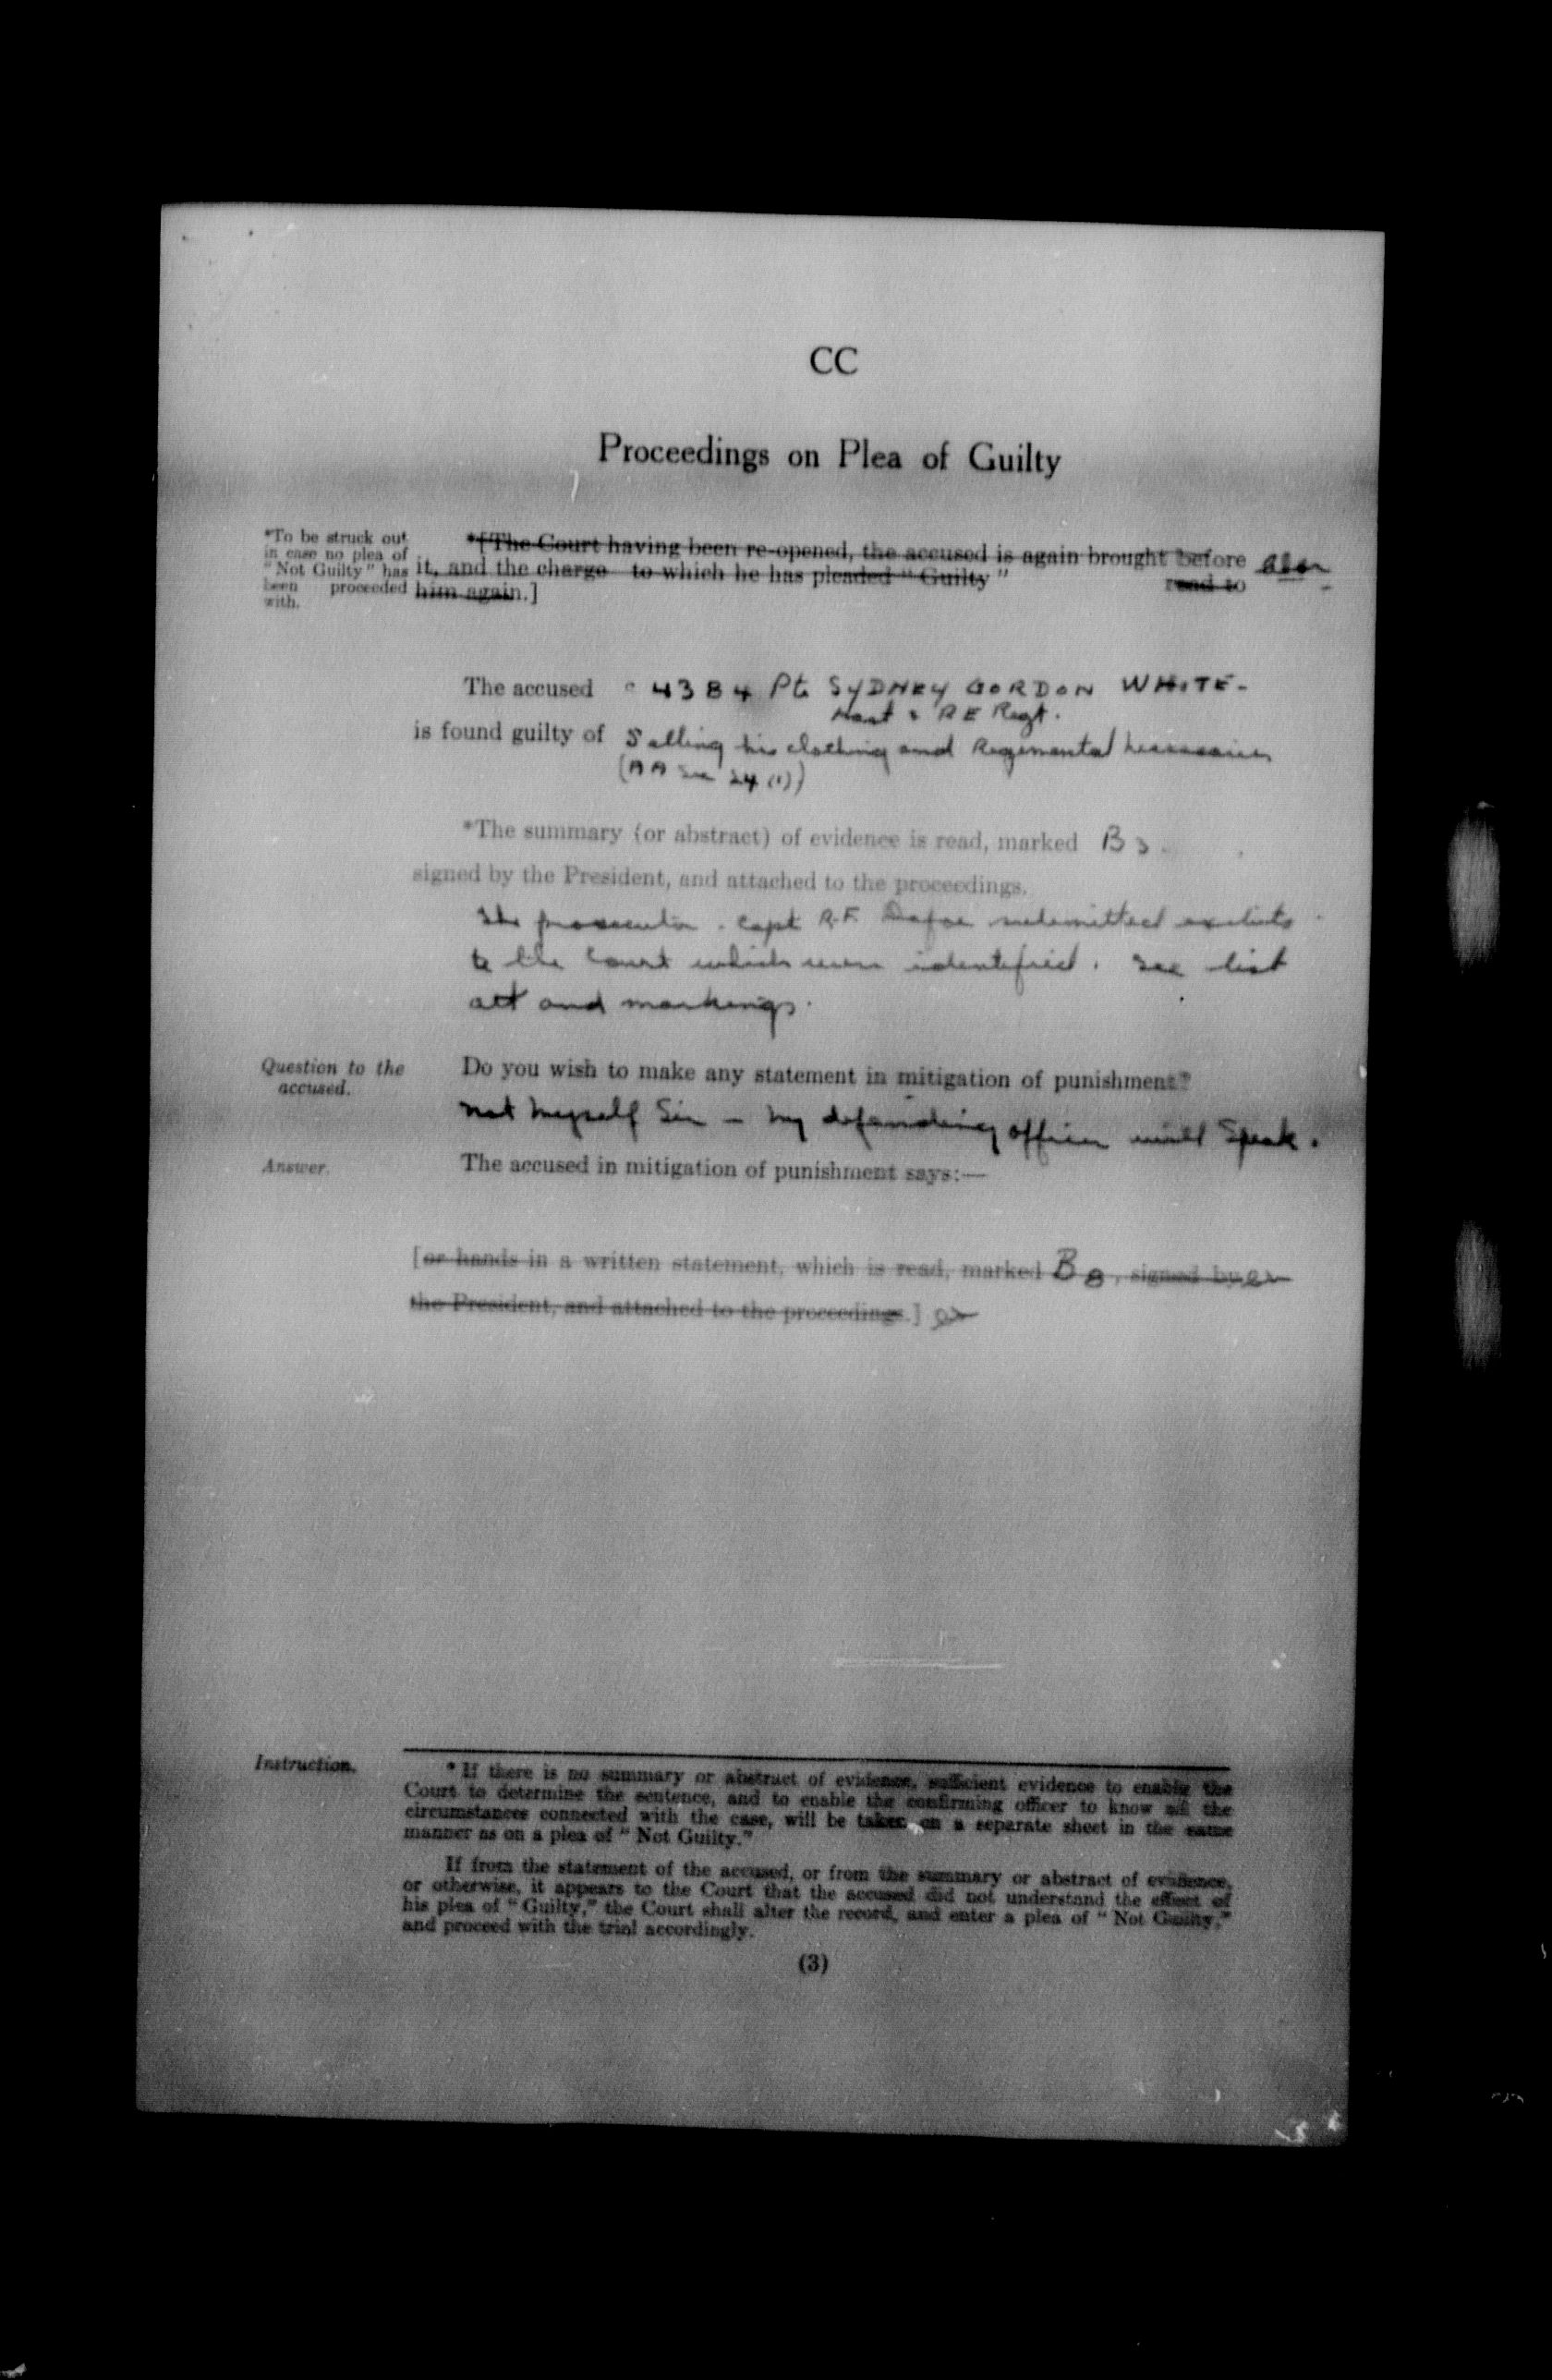 CC
Proceedings on Plea of Guilty
*To be struck out
in case no plea of
"Not Guilty" has
been proceeded
with.
*[The Court having been re-opened, the accused is again brought before
it, and the charge to which he has pleaded "Guilty" read to
him again.]
The accused C 4384 Pte SYDNEY GORDON WHITE-
Hast & P E Regt.
is found guilty of Selling his clothing and Regimental necessaries
(AA Sec 24 (1))
*The summary (or abstract) of evidence is read, marked B3
signed by the President, and attached to the proceedings.
The prosecutor. Capt R.F. submitted exhibits
to the Court which were identified. See list
att and markings.
Question to the
accused.
Do you wish to make any statement in mitigation of punishment?
not myself Sir - my defending officer will Speak.
Answer.
The accused in mitigation of punishment says:—
[or hands in a written statement, which is read, marked B, signed by
the President, and attached to the proceedings.]
Instruction.
* If there is no summary or abstract of evidence, sufficient evidence to enable the
Court to determine the sentence, and to enable the confirming officer to know all the
circumstances connected with the case, will be taken on a separate sheet in the same
manner as on a plea of "Not Guilty."
If from the statement of the accused, or from the summary or abstract of evidence,
or otherwise, it appears to the Court that the accused did not understand the effect of
his plea of "Guilty," the Court shall alter the record, and enter a plea of "Not Guilty,"
and proceed with the trial accordingly.
(3)